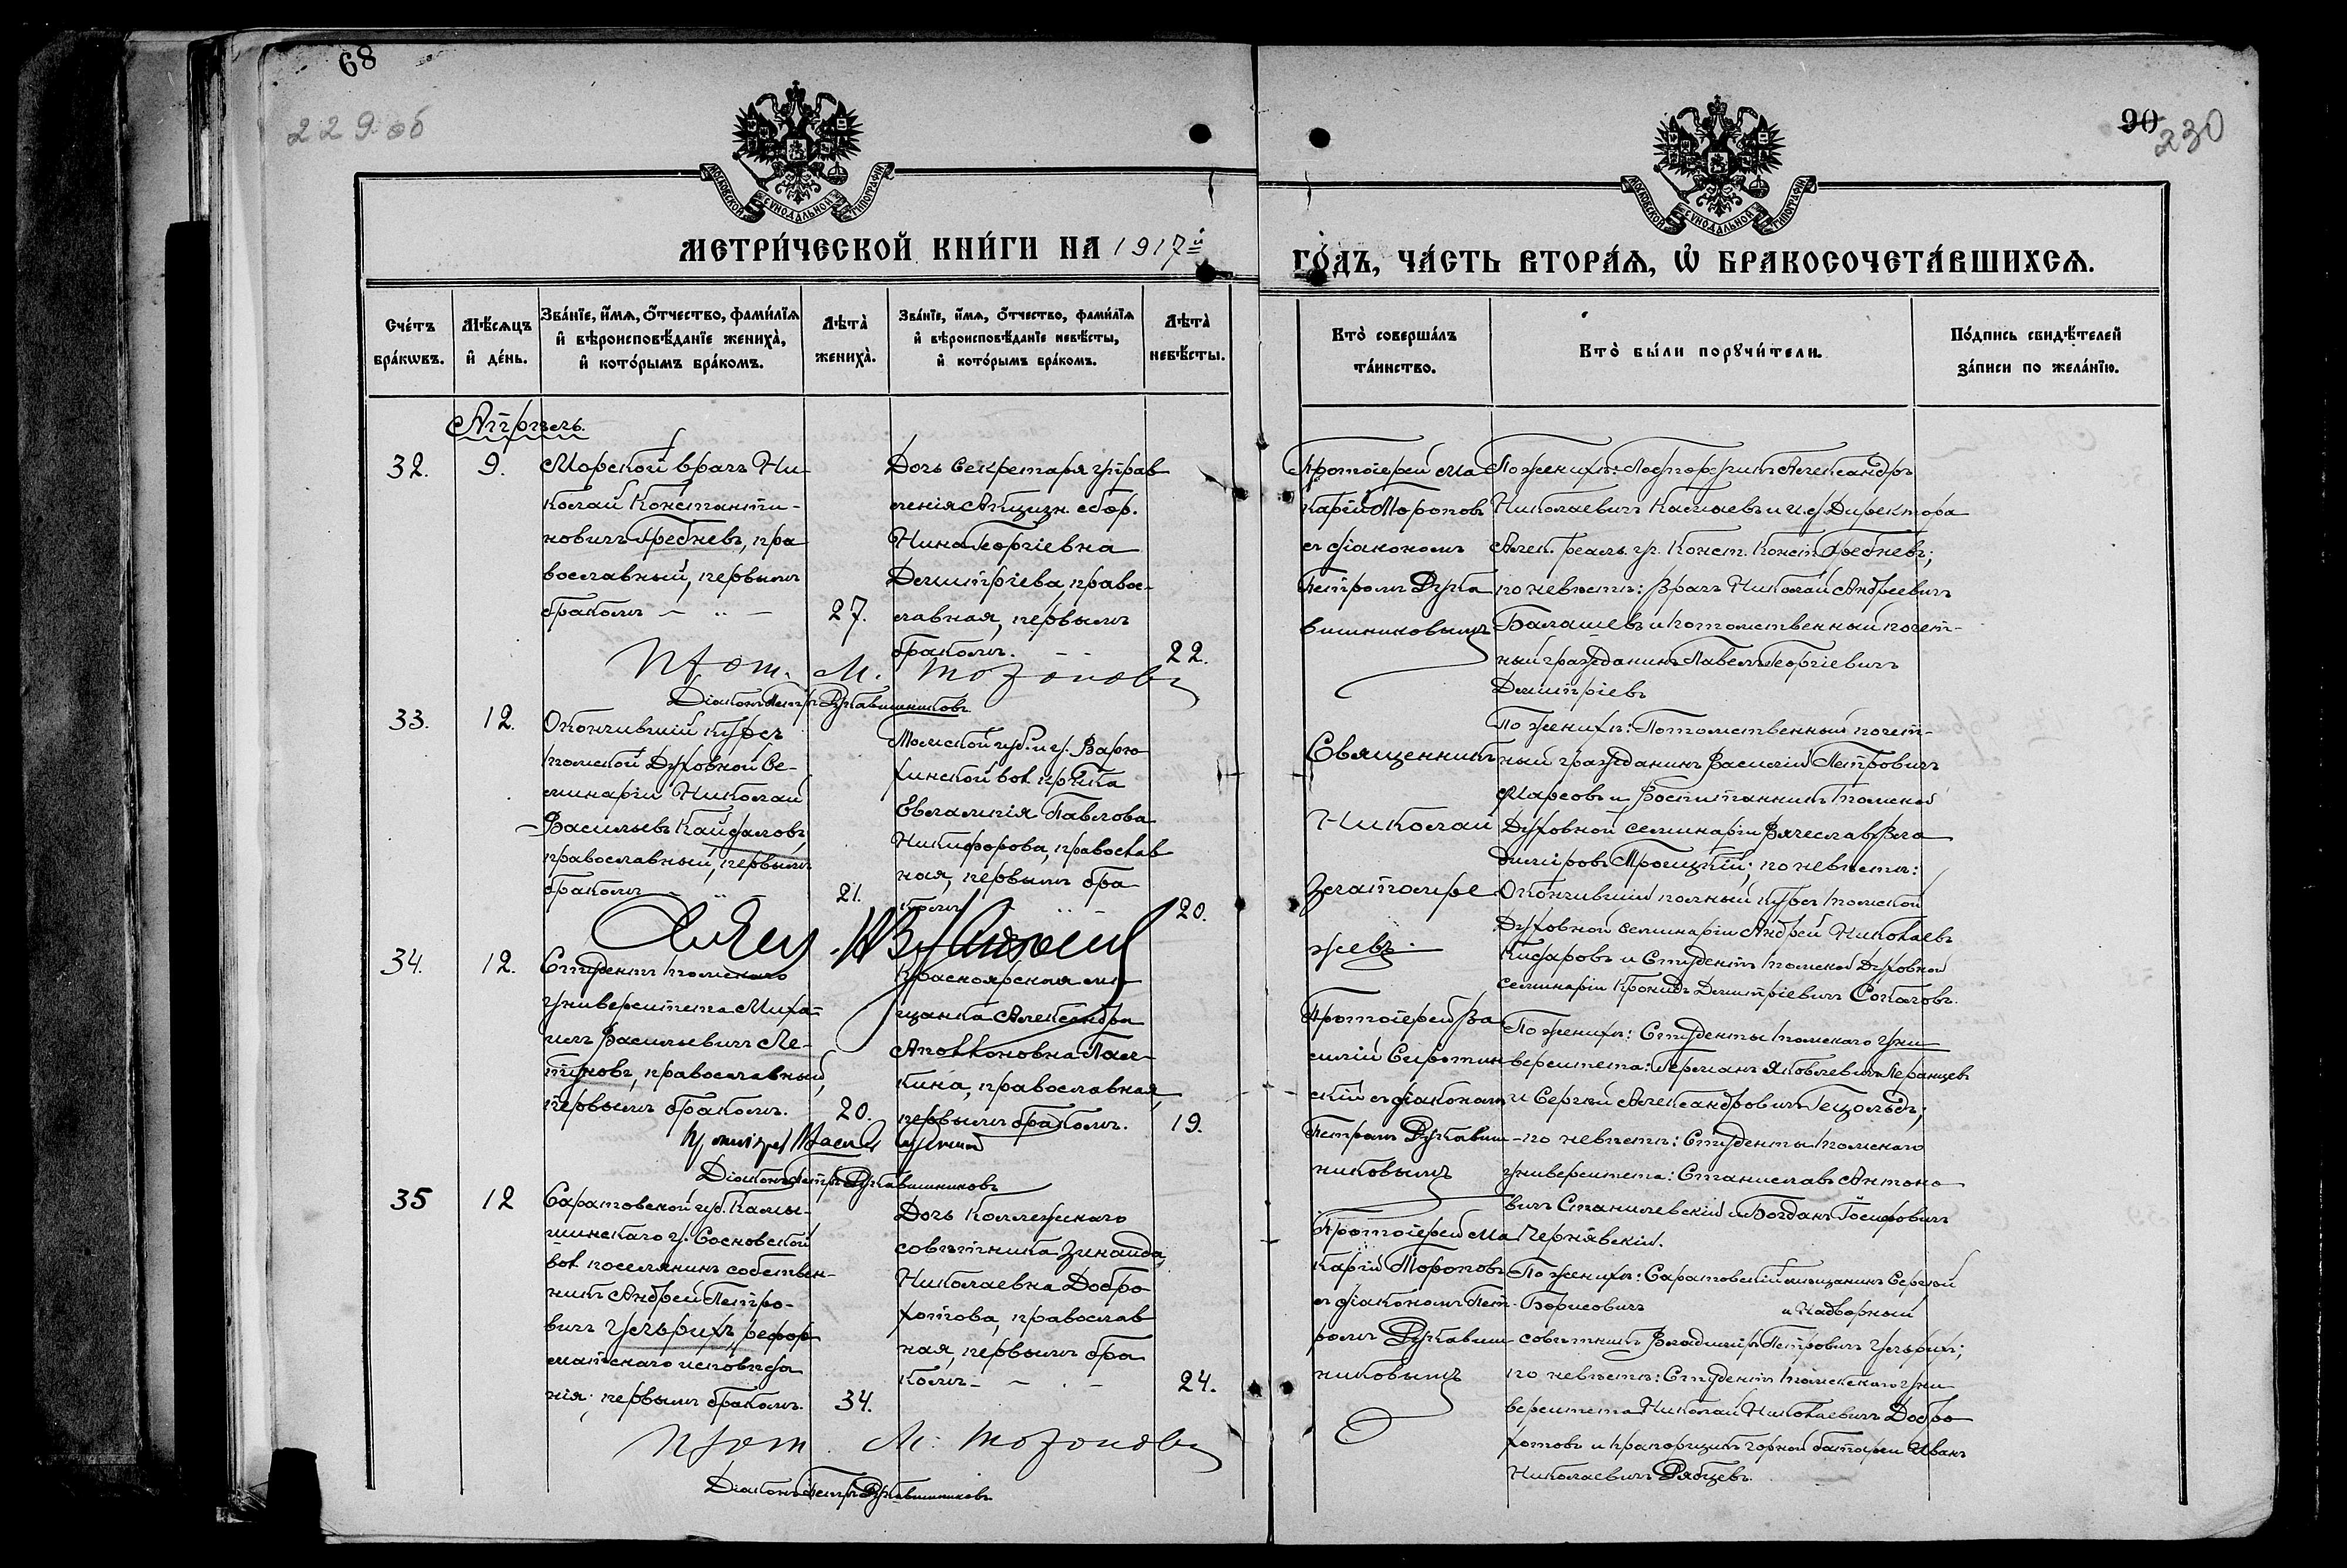 68
229 об
90
230
МОСКОВСКОЙ СѴНОДАЛЬНОЙ ТИПОГРАФІИ
МОСКОВСКОЙ СѴНОДАЛЬНОЙ ТИПОГРАФІИ
МЕТРИ́ЧЕСКОЙ КНИ́ГИ НА 1917й
ГО́ДЪ, ЧА́СТЬ ВТОРА́Ѧ, Ѽ БРАКОСОЧЕТА́ВШИХСѦ.
Сче́тъ бра́кѡвъ.
Мѣ́сѧцъ и де́нь.
Зва́нїе, и́мѧ, о́тчество, фами́лїѧ и вѣроисповѣ́данїе жениха̀, и кото́рымъ бра́комъ.
Лѣта̀ жениха̀.
Зва́нїе, и́мѧ, о́тчество, фами́лїѧ и вѣроисповѣ́данїе невѣ́сты, и кото́рымъ бра́комъ.
Лѣта̀ невѣ́сты.
Кто̀ соверша́лъ та́инство.
Кто̀ бы́ли порꙋчи́тели.
По́дпись свидѣ́телей за́писи по жела́нїю.
Апрѣль.
32.
9.
Морской врачъ Ни
колай Константи-
новичъ Гребневъ, пра
вославный, первымъ
бракомъ
27.
Дочь Секретаря управ
ленія Акцизн. сбор.
Нина Георгіевна
Димитріева, правос-
лавная, первымъ
бракомъ.
22.
Протоіерей Ма
карій Торопов
съ діакономъ
Петромъ Рука
вишниковымъ
По женихѣ: Александръ
Николаевичъ и и. д. Директора
Алек. реальн. уч. Конст. Конст. Гребневъ;
по невѣстѣ: Врачъ Николай Андреевичъ
Балашевъ и потомственный почет-
ный гражданинъ Павелъ Георгіевичъ
Димитріевъ
Прот. М. Торопов
Діаконъ Петръ Рукавишниковъ
33.
12.
Окончившій курсъ
Томской Духовной Се-
минаріи Николай
Васильевъ Кайдаловъ,
православный, первымъ
бракомъ
21.
Томской губ. и у. Варю
хинской вол. кр-нка
Евлампія Павлова
Никифорова, православ
ная, первымъ бра
комъ
20.
Священникъ
Николай
Златомре
жевъ
По женихѣ: Потомственный почет-
ный гражданинъ Василій Петровичъ
Марсовъ и Воспитанникъ Томской
Духовной Семинаріи Вячеславъ Вла
диміровъ Троицкій; по невѣстѣ:
Окончившій полный курсъ Томской
Духовной Семинаріи Андрей Николаевъ
и Студентъ Томской Духовной
Семинаріи Кронидъ Димитріевичъ
34.
12.
Студентъ Томскаго
Университета Миха-
илъ Васильевичъ Ле-
первымъ бракомъ.
20.
Красноярская мѣ-
щанка Александра
Аполлоновна
кина, православная,
первымъ бракомъ.
19.
Протоіерей Ва
силій Сиротин
скій съ діакономъ
Петромъ Рукавиш-
никовымъ
По женихѣ: Студенты Томскаго Уни
верситета: Германъ Яковлевичъ
и Сергѣй Александровичъ
по невѣстѣ: Студенты Томскаго
Университета: Станиславъ Антоно
вичъ Станилевскій и Богданъ Іосифовичъ
Чернявскій.
Діаконъ Петръ Рукавишниковъ
35
12
Саратовской губ. Камы-
шинскаго у. Сосновской
вол. поселянинъ собствен-
никъ Андрей Петро-
вичъ Ульрихъ, рефор
матскаго исповѣда
нія, первымъ бракомъ.
34.
Дочь Коллежскаго
совѣтника Зинаида
Николаевна Добро
хотова, православ
ная, первымъ бра
комъ
24.
Протоіерей Ма
карій Торопов
съ діакономъ Пет-
ромъ Рукавиш
никовымъ
По женихѣ: Саратовскій мѣщанинъ Сергѣй
Борисовичъ и Надворный
совѣтникъ Владиміръ Петровичъ Ульрихъ;
по невѣстѣ: Студентъ Томскаго Уни
верситета Николай Николаевичъ Добро
хотовъ и прапорщикъ горной батареи Иванъ
Николаевичъ Рябцевъ.
Прот. М. Торопов
Діаконъ Петръ Рукавишниковъ